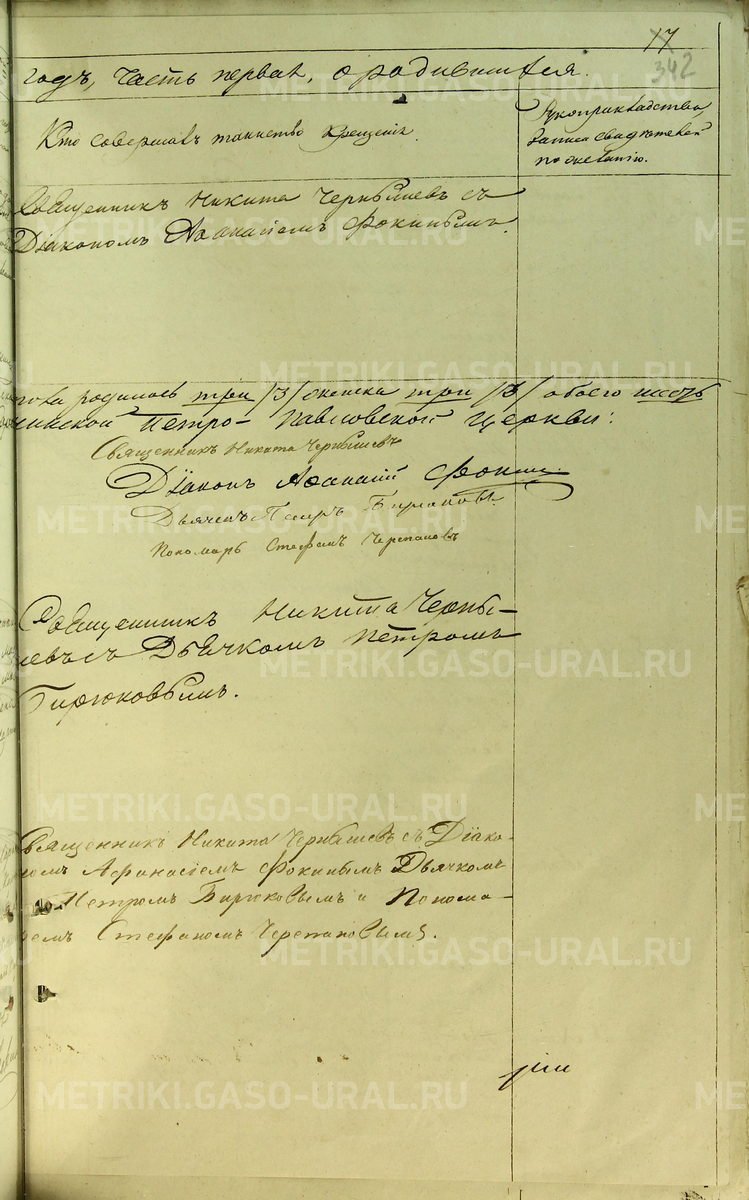 17
342
годъ, часть первая, о родившихся.
Кто совершалъ таинство крещенія.
Рукоприкладство
записи свидѣтелей
по желанію.
Священникъ Никита Чернышевъ съ
Діакономъ Аѳанасіемъ Фокинымъ.
родилось три /3/ женска три /3/ обоего шесть
Петро-Павловской Церкви:
Священникъ Никита Чернышевъ
Діаконъ Аѳанасій Фокин
Дьячекъ Петръ Бирюковъ.
Пономарь Стефанъ Черепановъ
Священникъ Никита Черны-
шевъ съ Дьячкомъ Петромъ
Бирюковымъ.
Священникъ Никита Чернышевъ съ Діако-
номъ Афанасіемъ Фокинымъ Дьячкомъ
Петромъ Бирюковымъ и Понома-
ремъ Стефаномъ Черепановымъ.
METRIKI.GASO-URAL.RU